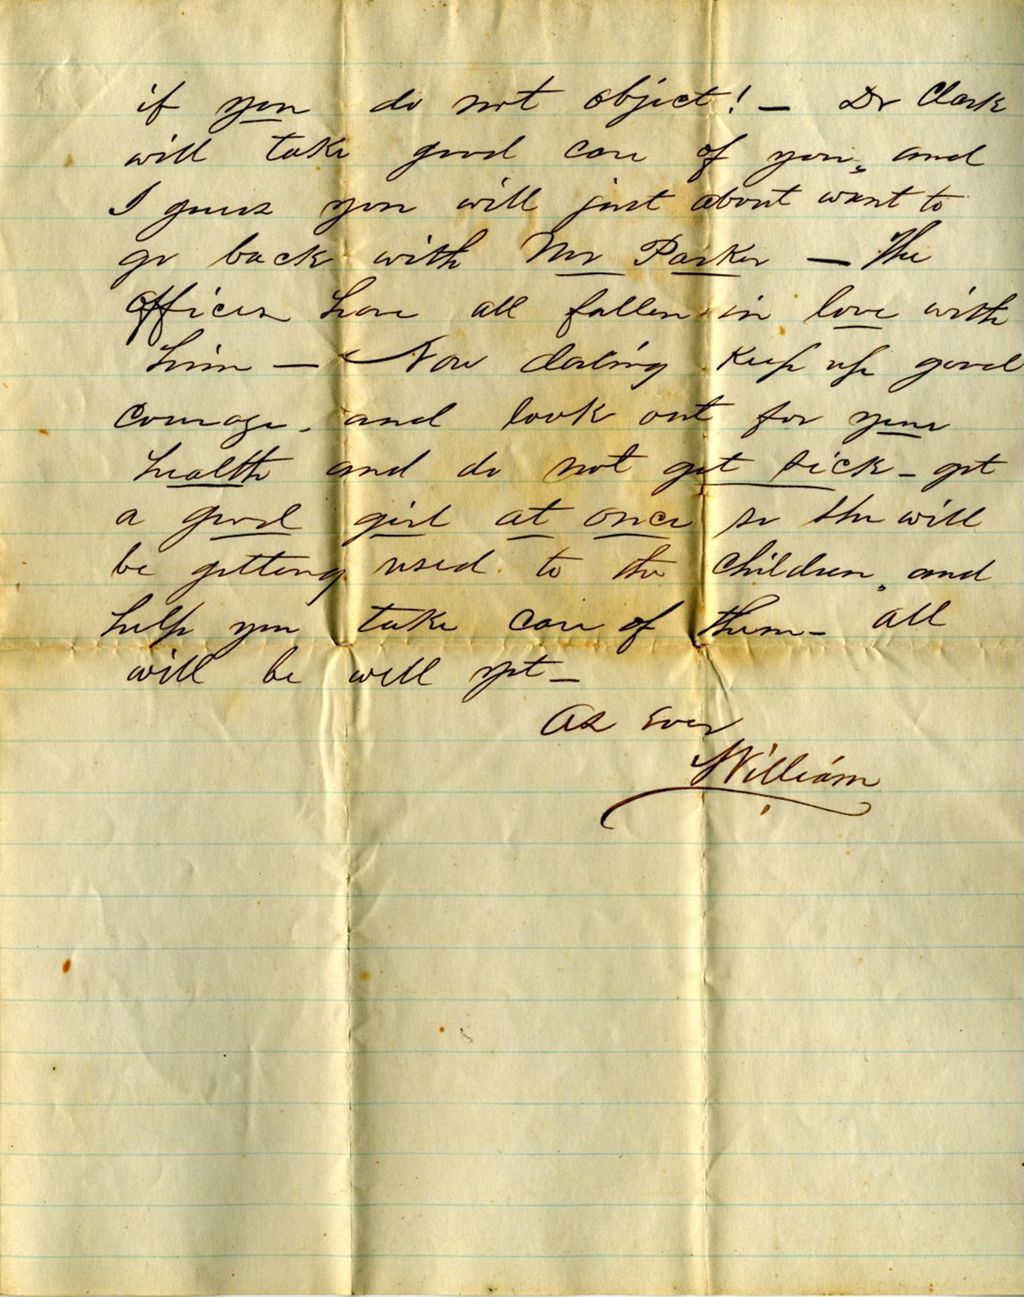 if you do not object! — Dr Clark
will take good care of you, and
I guess you will just about want to
go back with Mr Parker — The
officers have all fallen in love with
him — Now darling keep up good
courage. and look out for your
health and do not get sick — get
a good girl at once so she will
be getting used to the children, and
help you take care of them — all
will be well yet —
As Ever
William